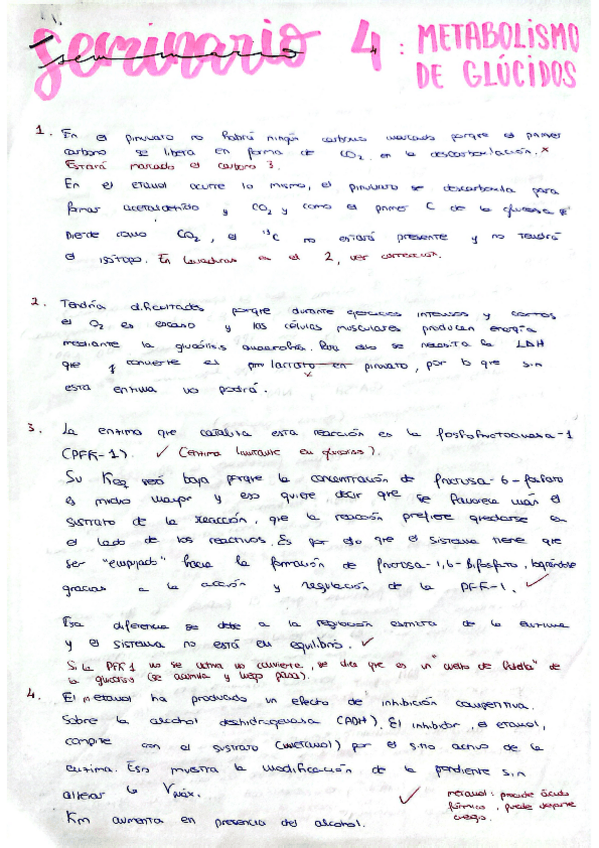 Seminario 4: METABOLISMO
DE GLÚCIDOS
1. En el piruvato no habrá ningún carbono marcado porque el primer
carbono se libera en forma de CO2 en la descarboxilación. x
Estará marcado el carbono 3.
En el etanol ocurre lo mismo, el piruvato se descarboxila para
formar acetaldehído y CO2 y como el primer C de la glucosa se
pierde como CO2, el C no estará presente y no tendrá
el isótopo. En levaduras en el 2, ver corrección.
2. Tendría dificultades porque durante ejercicios intensos y cortos
el O2 es escaso y las células musculares producen energía
mediante la glucólisis anaerobia. Para eso se necesita la LDH
que convierte el lactato en piruvato, por lo que sin
x
esta enzima no podrá.
3. La enzima que cataliza esta reacción es la fosfofructoquinasa-1
(PFK-1). ✓ (enzima limitante en glucólisis).
Su Keq será baja porque la concentración de fructosa-6-fosfato
es mucho mayor y eso quiere decir que se favorece más el
sustrato de la reacción, que la reacción prefiere quedarse en
el lado de los reactivos. Es por eso que el sistema tiene que
ser "empujado" hacia la formación de fructosa-1,6-bifosfato, lográndose
gracias a la acción y regulación de la PFK-1. ✓
Esa diferencia se debe a la regulación estricta de la enzima
y el sistema no está en equilibrio. ✓
Si la PFK1 no se activa no convierte, se dice que es un "cuello de botella" de
la glucólisis (se acumula y luego pasa).
4. El metanol ha producido un efecto de inhibición competitiva.
Sobre la alcohol deshidrogenasa (ADH). El inhibidor, el etanol,
compite con el sustrato (metanol) por el sitio activo de la
enzima. Esto muestra la modificación de la pendiente sin
alterar la Vmáx.
✓ metanol: produce ácido
fórmico, puede dejarte
ciego.
Km aumenta en presencia del alcohol.